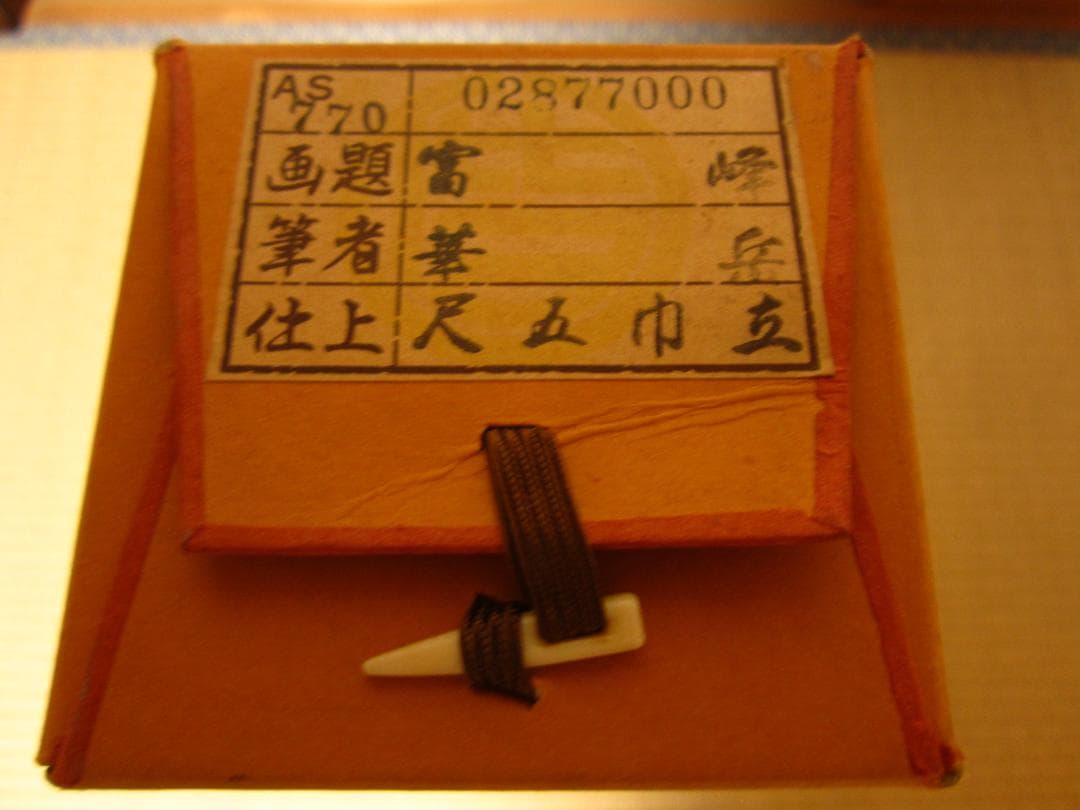 AS 770 02877000
画題 富峰
筆者 華岳
仕上 尺五巾立